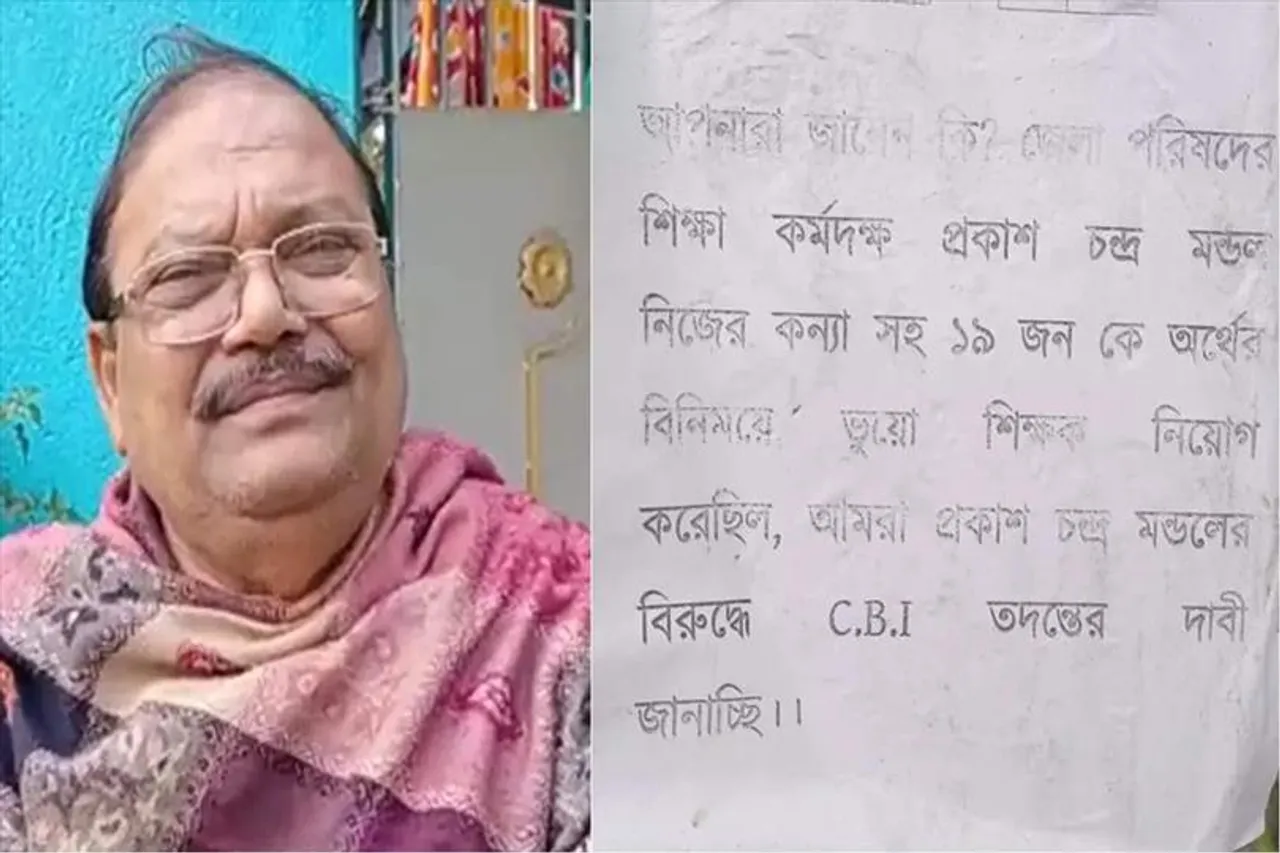 আপনারা জানেন কি? জেলা পরিষদের
শিক্ষা কর্মদক্ষ প্রকাশ চন্দ্র মন্ডল
নিজের কন্যা সহ ১৯ জন কে অর্থের
বিনিময়ে ভুয়ো শিক্ষক নিয়োগ
করেছিল, আমরা প্রকাশ চন্দ্র মন্ডলের
বিরুদ্ধে C.B.I তদন্তের দাবী
জানাচ্ছি।।